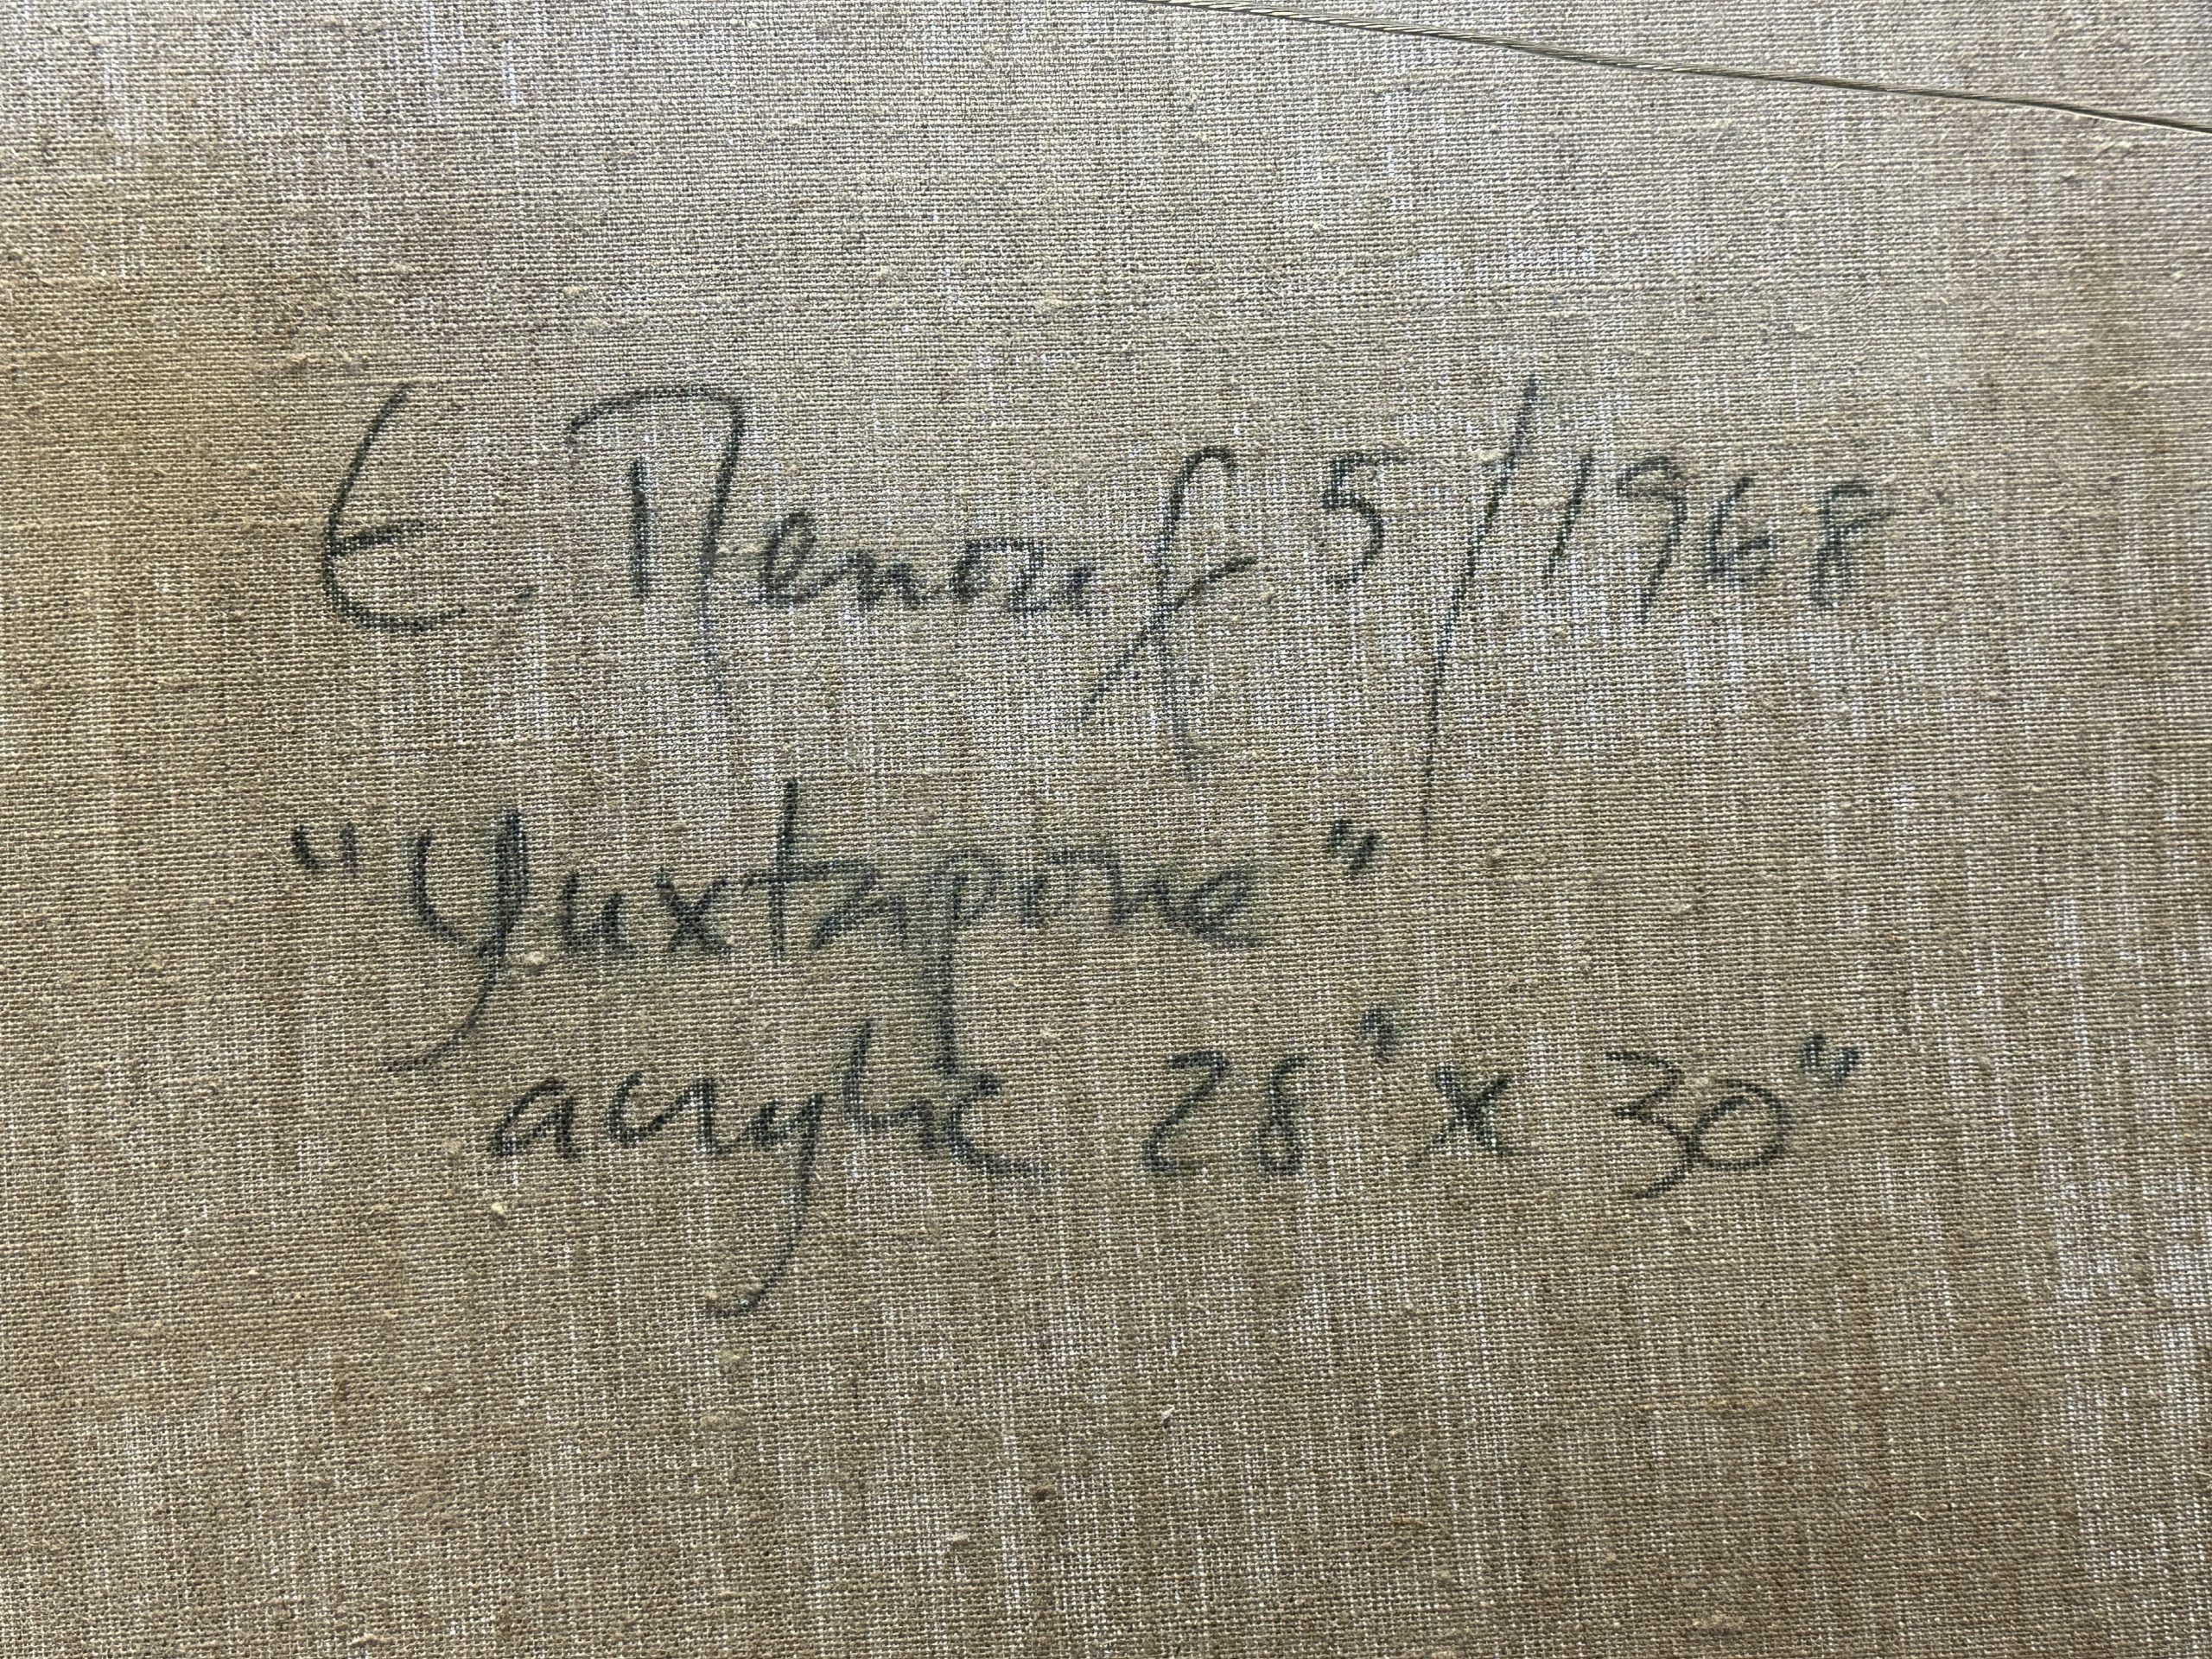 E. Renouf 5/1968
"Yuxtapone"
acrylic 28" x 30"